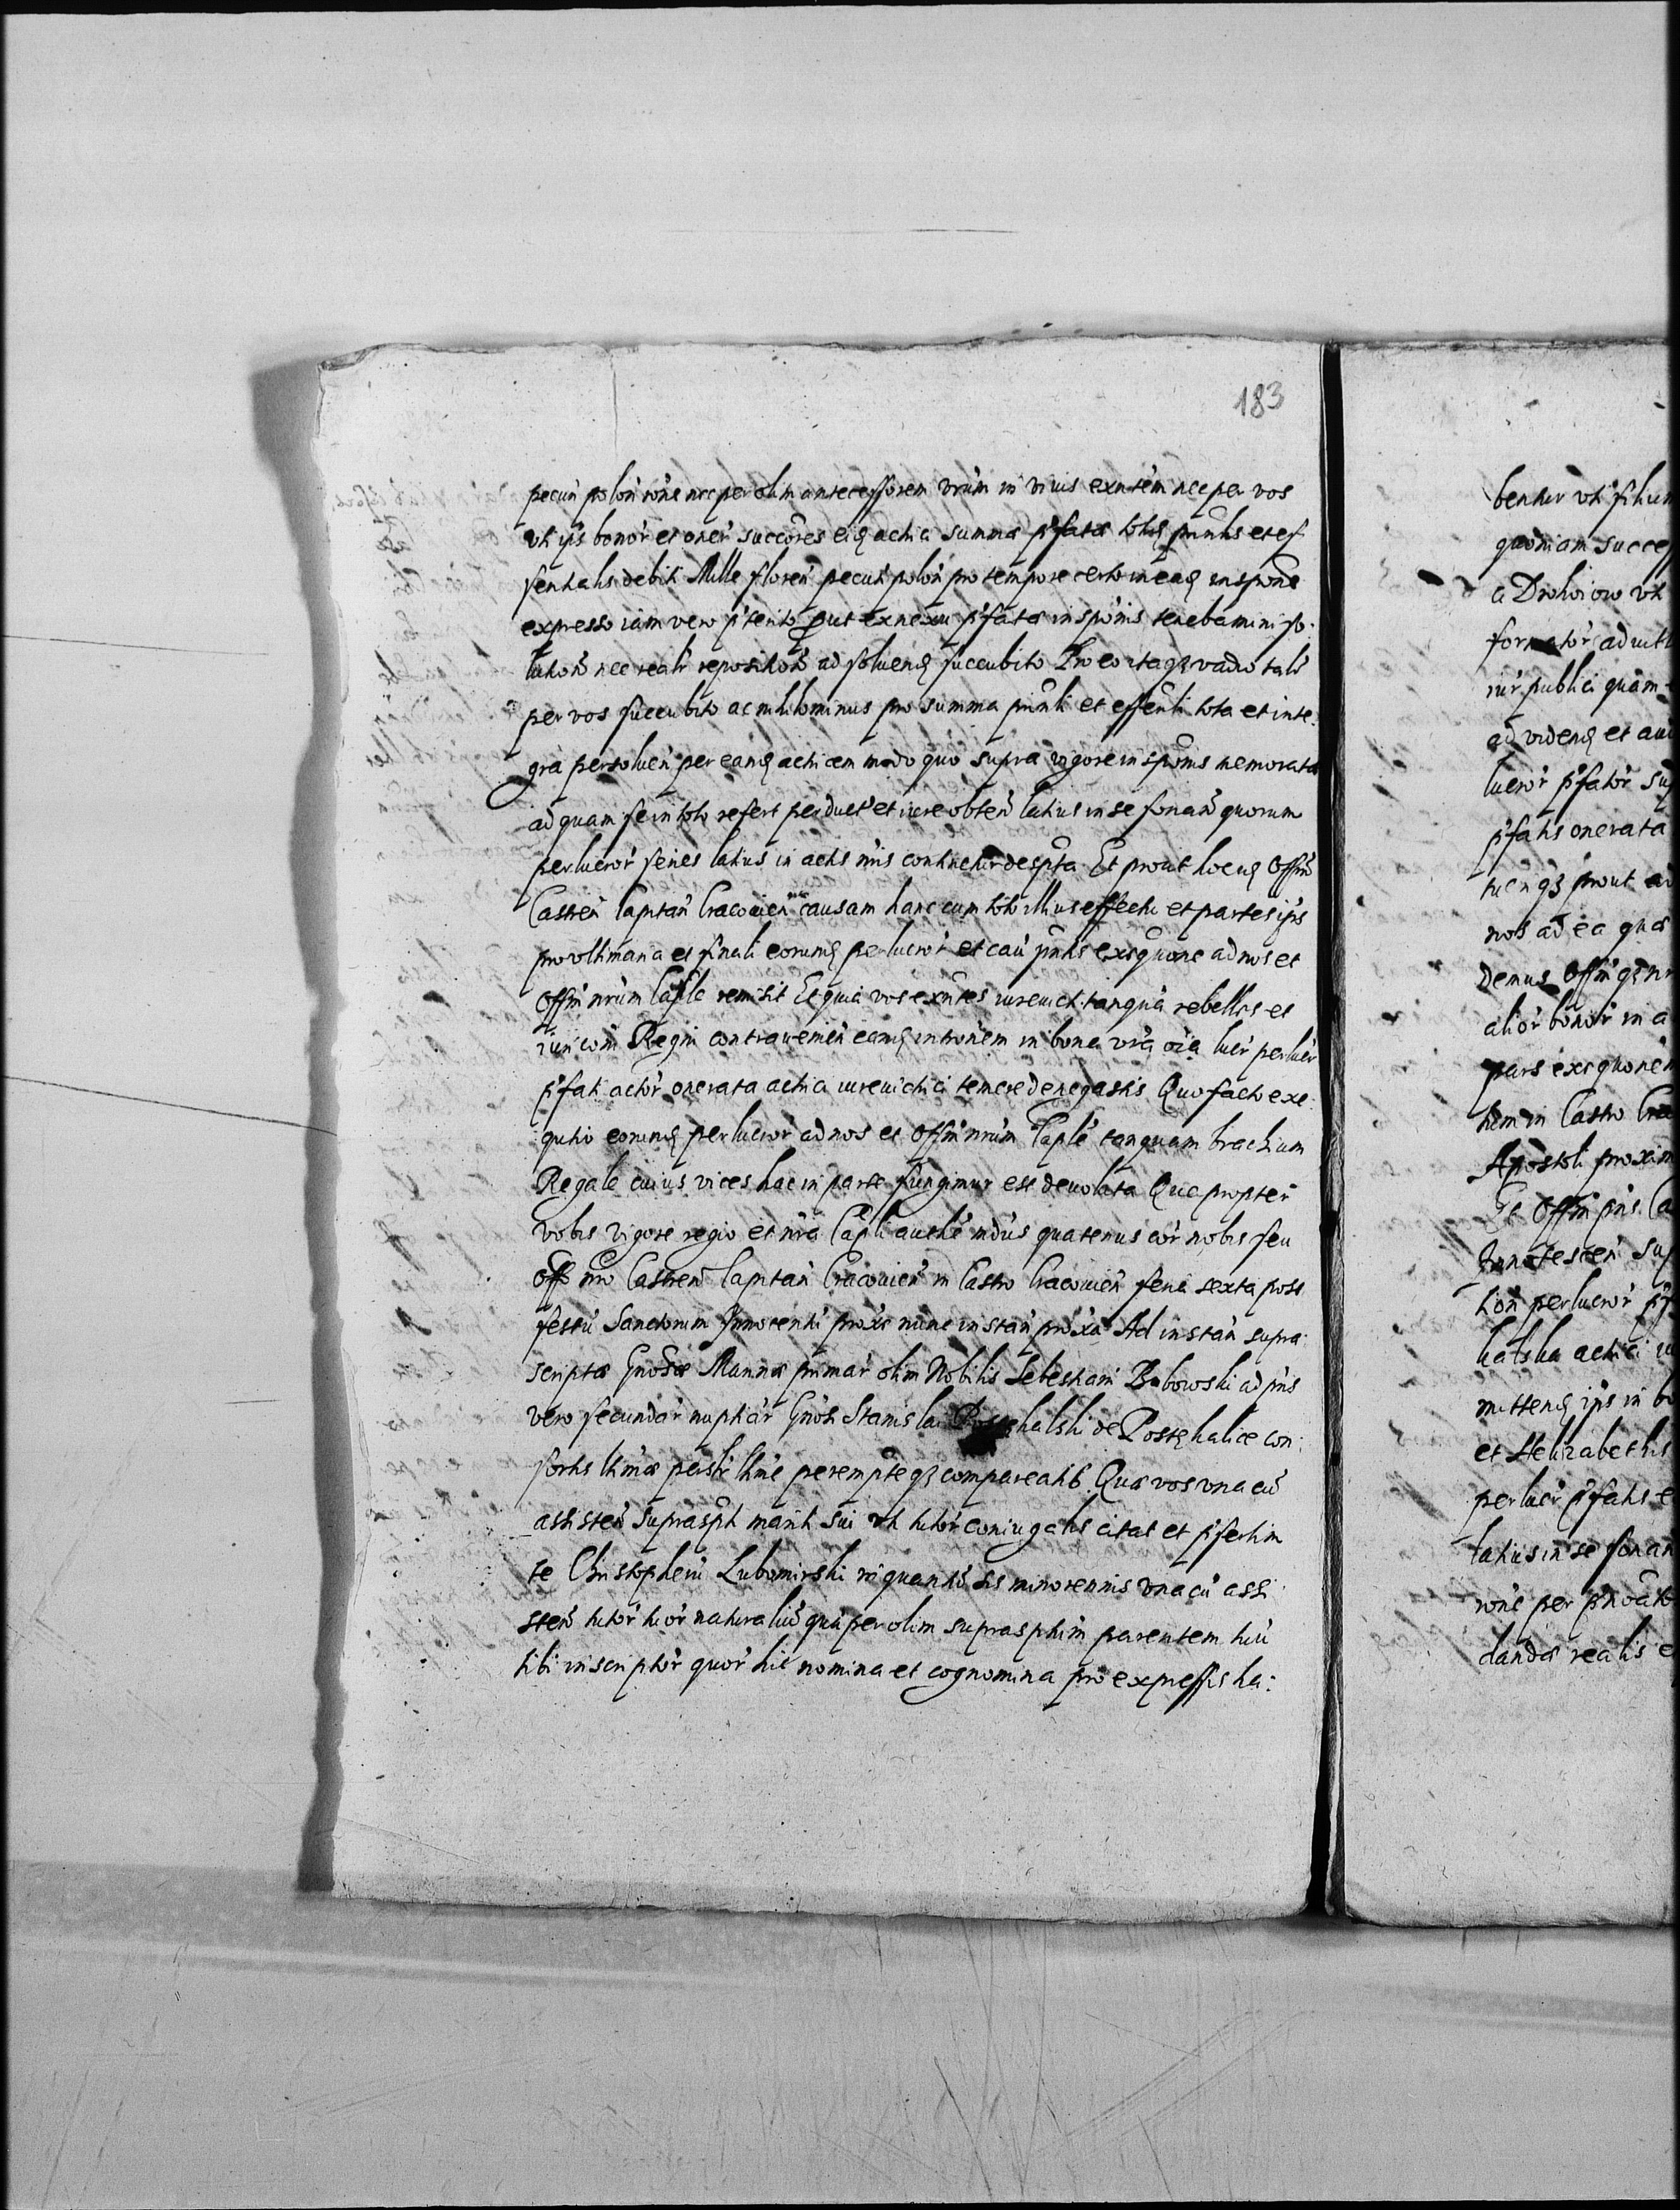 183
pecun polon rone nec per olim antecessorem vrum in viuis exntem nec per vos
vti ips bonor et oner succores eid actici summæ pfatæ totiq prinlis et ef
fentialis debiti Mille floren pecun polon pro tempore certo in eaq inspone
expresso iam vero pterito put ex nexu pfatæ inspónis tenebamini so:
lution nec reali reposition ad soluend succubito Pro eo itaqz vadio tali
per vos succubito ac nihilominus pro summa prinli et effenli tota et inte
gra persoluen per eand acticem modo quo supra vigore inspónis memorata
ad quam se in toto refert perduct et iure obten latius in se sonan quorum
perlucror series latius in actis nris continetur despta Et prout hocq Offm
Castren Capitan Cracouien causam hanc cum toto illius effectu et partes ips
pro vltimaria et finali eorumq perlucror et cau pntis exequone ad nos et
Offm nrum Caple remisit Et quia vos exntes iureuict tanqua rebelles et
iuri coni Regni contrauenien eamq intronem in bona vra oia lucr perlucr
pfati actor onerata actici iureuictrici temere denegastis Quo facto exe:
qutio eorumq perlucror ad nos et Offm nrum Caple tanquam brachium
Regale cuius vices hac in parte fungimur est deuoluta Quapropter
vobis vigore regio et nra Capli authe mdus quatenus cor nobis seu
Offo nro Castren Capitan Cracouien in Castro Cracouien feria sexta post
festu Sanctorum Innocenti proxe nunc instan proxa Ad instan supra:
scriptæ Gnosæ Mannæ primar olim Nobilis Sebestiani Bobowski ad pns
vero secundar nuptiar Gnosi Stanislai halski de Postęhalice con:
sortis ltimæ perslr ltme perempteqz compareatis. Quæ vos vna cu
assisten supraspti mariti sui vti tutor coniugalis citat et pfertim
te Christopheru Lubomirski inquantu sis minorennis vna cu assi
sten tutor tuor naturaliu qua per olim suprasptum parentem tuu
tibi inscriptor quor hic nomina et cognomina pro expressis ha:
bentur vti filiu
quoniam succes
a Drohoiow vti
formator aduit
iur publici quam
ad videnq et au
lucror pfator su
pfatis onerata
tuenqz prout a
nos ad ea quæ
demus Offmqz nr
alior bonor in a
pars exequonem
tem in Castro Cra
Apostoli proxim
Et Offm pns Ca
Innotescen sup
tion perlucror pf
halska actrici iu
mittenq ips in bo
et Helizabethis
perlucr pfatis e
latius in se sonan
rone per pnoato
dandæ realis e